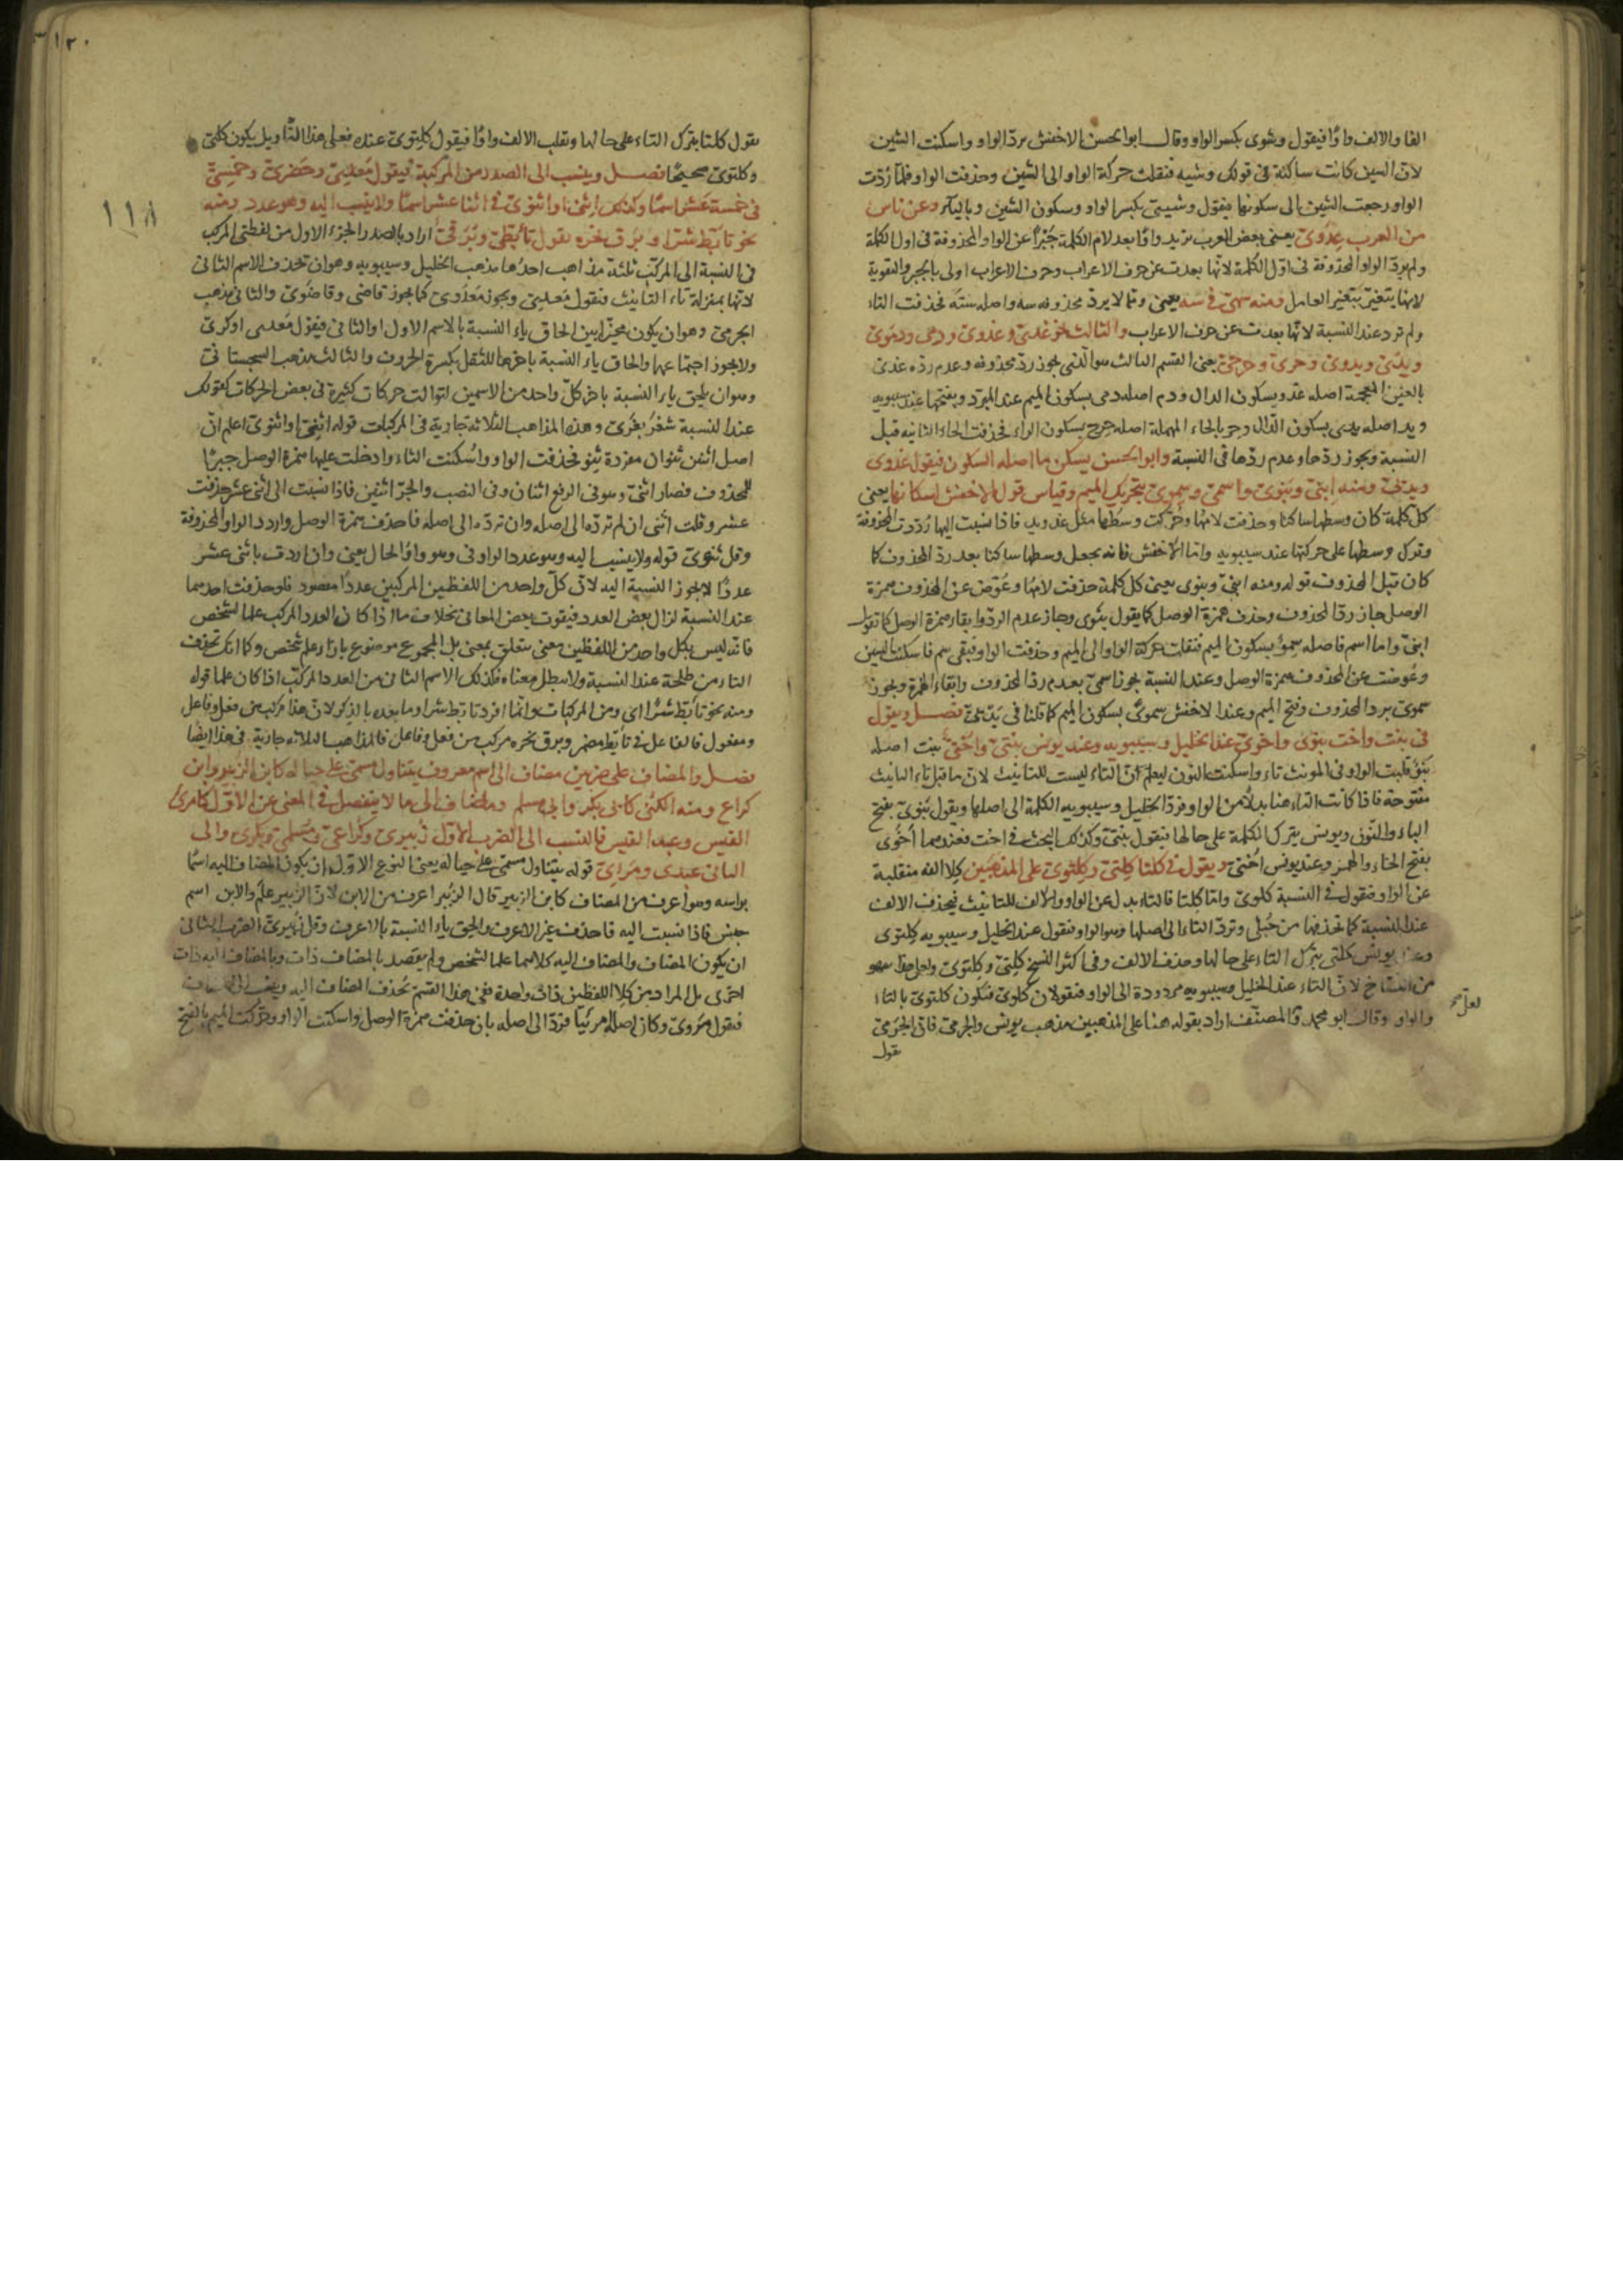 الفا والالف واوًا فيقول وشوى بكسر الواو وقال ابو الحسن الاخفش بردّ الواو واسكنت الشين
لان السين كانت ساكنة فى قولك وشيه فنقلت حركة الواو الى الشين وحذفت الواو فلمّا رُدّت
الواو رجعت الشين الى سكونها فيقول وشيىّ بكسر الواو وسكون الشين وبالياء وعن ناس
من العرب عِدَوىّ يعنى بعض العرب يزيد واوًا بعد لام الكلمة جَبْرًا عن الواو المحذوفة فى اول الكلمة
ولم يردّ الواو المحذوفة فى اوّل الكلمة لانّها بعدت عن حرف الاعراب وحرف الاعراب اولى بالجبر والتقوية
لانها يتغيّر بتغير العامل ومنه سهىّ فى سه يعنى وممّا لا يردّ محذوفه سه واصله سته فحذفت التاء
ولم ترد عند النسبة لانّها بعدت عن حرف الاعراب والثالث نحو غدىّ وغدوىّ ودمىّ ودموىّ
ويدىّ ويدوىّ وحرىّ وحرحىّ يعنى القسم الثالث هو الذى يجوز ردّ محذوفه وعدم ردّه غدىّ
بالغين المعجمة اصله غدو بسكون الدال ودم اصله دمى بسكون الميم عند المبرّد وبفتحها عند سيبويه
ويد اصله يدى بسكون الدال وحر بالحاء المهملة اصله حرح بسكون الراء فحذفت الحاء الثانية قبل
النسبة ويجوز ردّها وعدم ردّها فى النسبة وابو الحسن يسكن ما اصله السكون فيقول غدوىّ
ويدىىّ ومنه ابنىّ وبنوىّ واسمىّ وسموىّ بتحريك الميم وقياس قول الاخفش اسكانها يعنى
كل كلمة كان وسطها ساكنا وحذفت لامها وحُرّكت وسطها مثل غد ويد فاذا نسبت اليها رُدّدت المحذوفة
وترك وسطها على حركتها عند سيبويه وامّا الاخفش فانه يجعل وسطها ساكنا بعد ردّ المحذوف كما
كان قبل المحذوف قوله ومنه ابنىّ وبنوى يعنى كل كلمة حذفت لامها وعُوّض عن المحذوف همزة
الوصل جاز ردّ المحذوف وحذف همزة الوصل كما يقول بنوى وجاز عدم الردّ وابقاء همزة الوصل كما تقول
ابنىّ واما اسم فاصله سموٌ بسكون الميم فنقلت حركة الواو الى الميم وحذفت الواو فبقى سم فاسكنت السين
وعُوضت عن المحذوف همزة الوصل وعند النسبة يجوز اسمىّ بعدم ردّ المحذوف وابقاء الهمزة ويجوز
سموىّ برد المحذوف وفتح الميم وعند الاخفش سموىّ بسكون الميم كما قلنا فى يدىىّ فصل ويقول
فى بنت واخت بنوىّ واخوىّ عند الخليل وسيبويه وعند يونس بنتىّ واختىّ بنت اصله
بنوٌ قلبت الواو فى المونث تاء واسكنت النون ليعلم انّ التاء ليست للتانيث لانّ ما قبل تاء التانيث
مفتوحة فاذا كانت التاء هنا بدلًا من الواو فردّ الخليل وسيبويه الكلمة الى اصلها ويقول بنوىّ بفتح
الباء والنون ويونس يترك الكلمة على حالها فيقول بنتىّ وكذلك البحث فى اخت فعندهما أخوى
بفتح الخاء والهمز وعند يونس اختىّ ويقول فى كلتا كلتىّ وكلتوىّ على المذهبين كلا الفه منقلبة
عن الواو فتقول فى النسبة كلوىّ وامّا كلتا فالتاء بدل عن الواو والالف للتانيث فيحذف الالف
عند النسبة كما تحذفها من حُبلى وتردّ التاء الى اصلها وهو الواو فتقول عند الخليل وسيبويه كلتوى
وعند يونس كلتى بترك التاء على حالها وحذف الالف وفى اكثر النسخ كلتىّ وكلتوىّ ولعل هذا سهو
من النساخ لانّ التاء عند الخليل وسيبويه مردودة الى الواو فتقولان كلوىّ فتكون كلتوىّ بالتاء
والواو وقال ابو محمد والمصنّف اراد بقوله هنا على المذهبين مذهب يونس والجرمى فانّ الجرمىّ
يقول
يقول كلتا بترك التاء على حالها وتقلب الالف واوًا فيقول كلتوىّ عنده فعلى هذا التأويل يكون كلتىّ
وكلتوىّ صحيحًا فصل وينسب الى الصدر من المركبة فيقول مَعدىّ وحَضرىّ وخمسىّ
فى خمسة عَشر اسمًا وكذلك اثنىّ او اثنوىّ فى اثنا عشر اسمًا ولا ينسب اليه وهو عدد ومنه
نحو تأبّط شرّا وبرق نحره يقول تأبّطىّ وبَرَقىّ اراد بالصدر الجزء الاول من لفظتى المركب
فى النسبة الى المركّب ثلثة مذاهب احدُها مذهب الخليل وسيبويه وهو ان تحذف الاسم الثانى
لانّها بمنزلة تاء التانيث فتقول مَعدىّ ويجوز مَعدَوىّ كما يجوز قاضى وقاضوىّ والثانى مذهب
الجرمىّ وهو ان يكون مخيّرا بين الحاق ياء النسبة بالاسم الاول او الثانى فيقول مَعدى او كربىّ
ولا يجوز اجتماعهما والحاق ياء النسبة باخرهما للثقل بكسرة الحروف والثالث مذهب السجستانىّ
وهو ان يلحق ياء النسبة باخر كلّ واحد من الاسمين لتوالت حركات كثيرة فى بعض الحركات كقولك
عند النسبة شغرىّ بغرىّ وهذه المذاهب الثلاثة جارية فى المركبات قوله اثنىّ او اثنوىّ اعلم انّ
اصل اثنين ثنوان مفردة ثنو فحذفت الواو واُسكنت الثاء وادخلت عليها همزة الوصل جبرًا
للمحذوف فصار اثنى وهو فى الرفع اثنان وفى النصب والجرّ اثنين فاذا نسبت الى اثنى عشر حذفت
عشر وقلت اثنى ان لم تردّه الى اصله وان تردّه الى اصله فاحذف همزة الوصل واردد الواو المحذوفة
وقل ثنوىّ قوله ولا ينسب اليه وهو عدد الواو فى وهو واو الحال يعنى وان اردت باثنى عشر
عددًا لا يجوز النسبة اليه لانّ كلّ واحد من اللفظين المركبين عددًا مقصود فلو حذفت احدهما
عند النسبة لزال بعض العدد فيفوت بعض المعانى بخلاف ما اذا كان العدد المركب علما لشخص
فانه ليس بكل واحد من اللفظين معنى متعلق بمعنى بل المجموع موضوع بازاء علم شخص وكما انك تحذف
التاء من طلحة عند النسبة ولا يبطل معناه فكذلك الاسم الثانى من العدد المركّب اذا كان علما قوله
ومنه نحو تأبّط شرًّا اى ومن المركبات وانّما افرد تابط شرا وما بعده بالذكر لانّ هذا مركب من فعل وفاعل
ومفعول فالفاعل فى تأبّط مضمر وبرق نحره مركب من فعل وفاعل فالمذاهب الثلاثة جارية فى هذا ايضًا
فصل والمضاف على ضربين مضاف الى اسم معروف يتناول مسمى على حياله كابن الزبير وابن
كراع ومنه الكُنى كابى بكر وابى مسلم ومضاف الى ما لا ينفصل فى المعنى عن الاوّل كامرئ
القيس وعبد القيس فالنسب الى الضرب الاوّل زبيرىّ وكراعىّ ومُسلمىّ وبكرىّ والى
الثانى عبدى ومَرَاىّ قوله يتناول مسمى على حياله يعنى النوع الاوّل ان يكون المضاف اليه اسمًا
براسه وهو اعرف من المضاف كابن الزبير قال الزبير اعرف من الابن لانّ الزبير علم والابن اسم
جنس فاذا نسبت اليه فاحذف غير الاعرف والحق ياء النسبة بالاعرف وقل زُبيرىّ الضرب الثانى
ان يكون المضاف والمضاف اليه كلاهما علما لشخص ولم يقصد بالمضاف ذات وبالمضاف اليه ذات
اخرى بل المراد من كلا اللفظين ذات واحدة ففى هذا القسم تحذف المضاف اليه
فيقول مَرَوىّ وكان اصله امرئيّا فردّ الى اصله بان حذفت همزة الوصل واسكنت الراء وحرّكت الميم بالفتح
١١٨